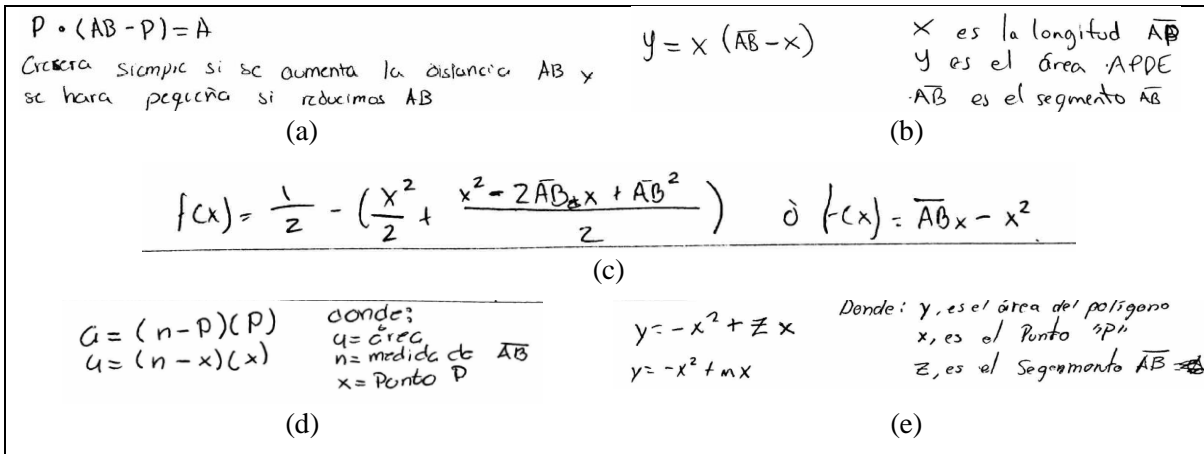 P • (AB - P) = A
Crecera siempre si se aumenta la distancia AB y
se hara pequeña si reducimos AB
(a)
y = x (\overline{AB} - x)
x es la longitud \overline{AP}
y es el área APDE
\overline{AB} es el segmento \overline{AB}
(b)
f(x) = \frac{1}{2} - (\frac{x^2}{2} + \frac{x^2 - 2\overline{AB} x + \overline{AB}^2}{2}) ó f(x) = \overline{AB}x - x^2
(c)
a = (n - P)(P)
a = (n - x)(x)
donde:
a = área
n = medida de \overline{AB}
x = Punto P
(d)
y = -x^2 + z x
y = -x^2 + mx
Donde: y, es el área del polígono
x, es el Punto "P"
z, es el Segenmento \overline{AB}
(e)